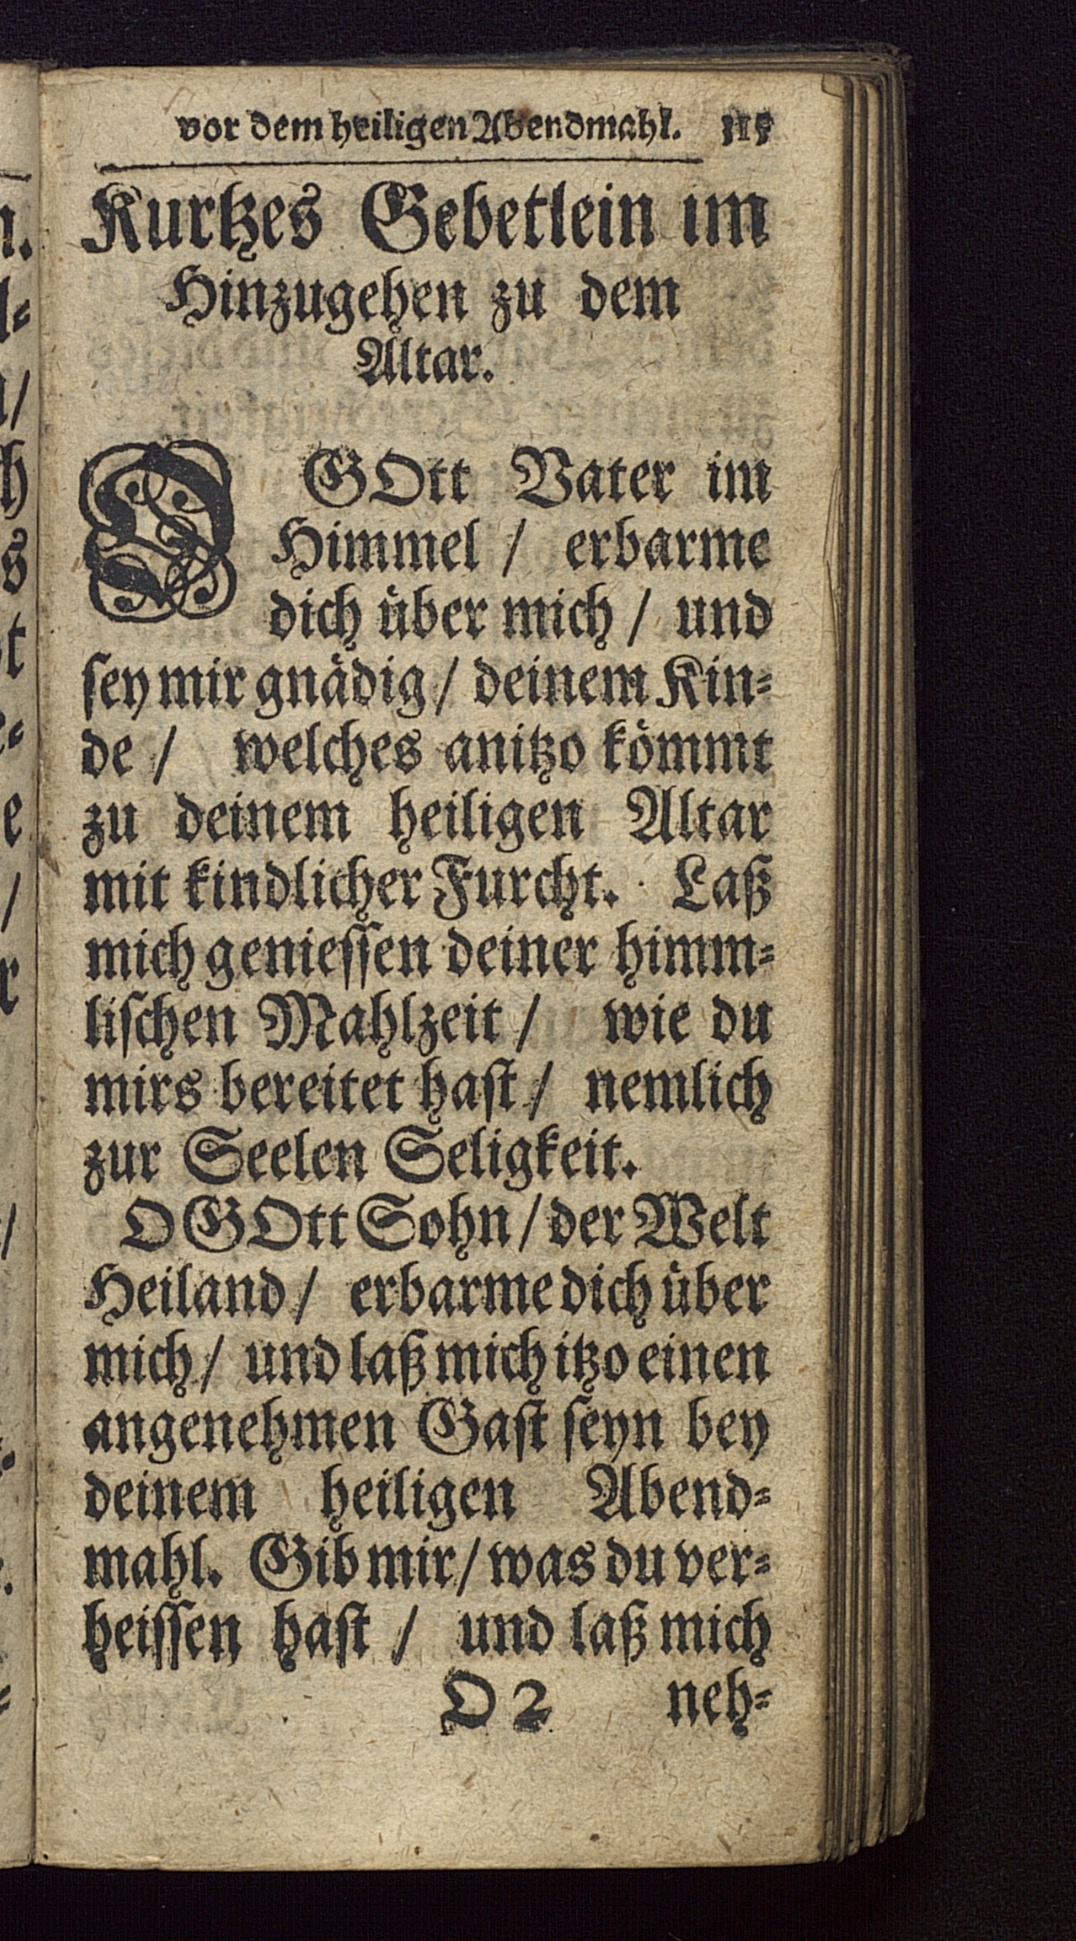 vor dem heiligen Abendmahl. 315
Kurtzes Gebetlein im
Hinzugehen zu dem
Altar.
O GOtt Vater im
Himmel / erbarme
dich über mich / und
sey mir gnädig / deinem Kin-
de / welches anitzo kömmt
zu deinem heiligen Altar
mit kindlicher Furcht. Laß
mich geniessen deiner himm-
lischen Mahlzeit / wie du
mirs bereitet hast / nemlich
zur Seelen Seligkeit.
O GOtt Sohn / der Welt
Heiland / erbarme dich über
mich / und laß mich itzo einen
angenehmen Gast seyn bey
deinem heiligen Abend-
mahl. Gib mir / was du ver-
heissen hast / und laß mich
O 2 neh-